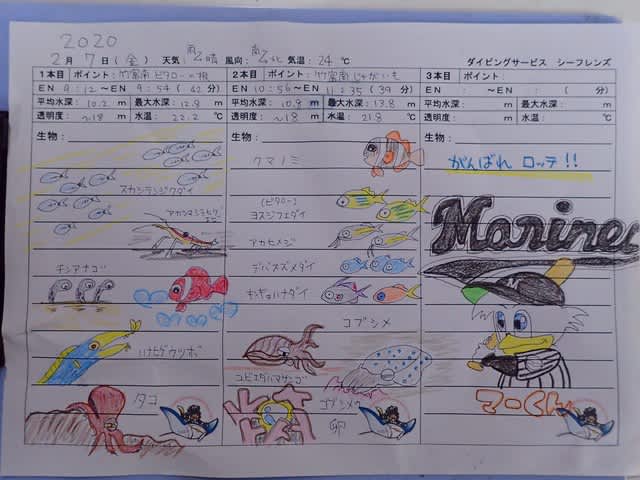 2020
2月7日(金) 天気 雨のち晴 風向: 南のち北 気温: 24 ℃ ダイビングサービス シーフレンズ
1本目 ポイント: 竹富南 ビタローの根
EN 9:12 ~EN 9:54 (42分)
平均水深: 10.2 m 最大水深: 12.8 m
透明度: ~18 m 水温: 22.2 ℃
生物:
スカシテンジクダイ
アカシマシラヒゲエビ
チンアナゴ
ハナヒゲウツボ
タコ
2本目 ポイント: 竹富南じゃがいも
EN 10:56 ~EN 11:35 (39分)
平均水深: 10.8 m 最大水深: 13.8 m
透明度: ~18 m 水温: 21.8 ℃
生物:
クマノミ
(ビタロー)
ヨスジフエダイ
アカヒメジ
デバスズメダイ
キンギョハナダイ
コブシメ
ユビエダハマサンゴ
コブシメの
卵
3本目 ポイント:
EN : ~EN : ( 分)
平均水深: m 最大水深: m
透明度: m 水温: ℃
生物:
がんばれ ロッテ!!
Marines
M
マーくん